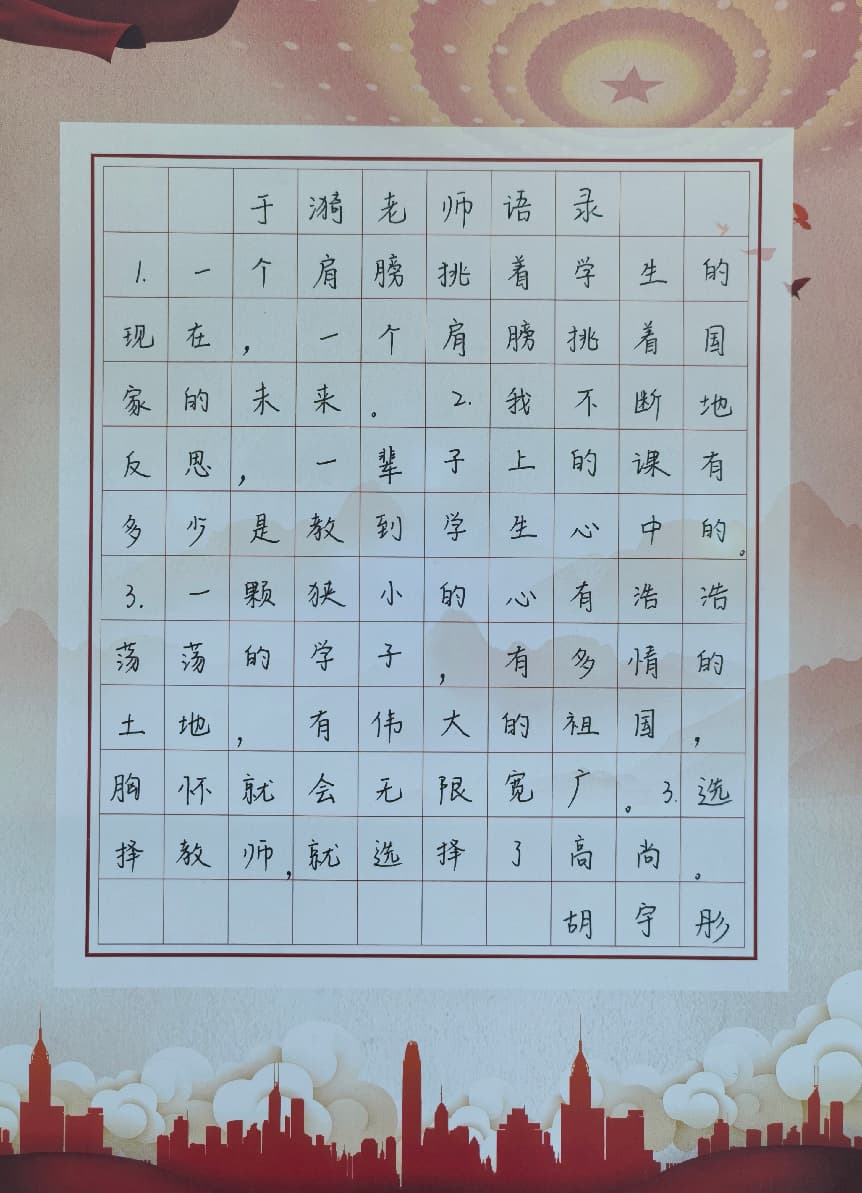 于漪老师语录
1. 一个肩膀挑着学生的
现在，一个肩膀挑着国
家的未来。2. 我不断地
反思，一辈子上的课有
多少是教到学生心中的。
3. 一颗狭小的心有浩浩
荡荡的学子，有多情的
土地，有伟大的祖国，
胸怀就会无限宽广。3. 选
择教师，就选择了高尚。
胡宇彤